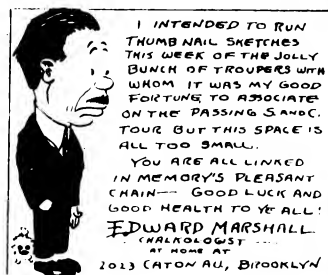 I INTENDED TO RUN
THUMB NAIL SKETCHES
THIS WEEK OF THE JOLLY
BUNCH OF TROUPERS WITH
WHOM IT WAS MY GOOD
FORTUNE TO ASSOCIATE
ON THE PASSING S. AND C.
TOUR BUT THIS SPACE IS
ALL TOO SMALL.
YOU ARE ALL LINKED
IN MEMORY'S PLEASANT
CHAIN— GOOD LUCK AND
GOOD HEALTH TO YE ALL!
EDWARD MARSHALL
CHALKOLOGIST
AT HOME AT
2023 CATON AU, BROOKLYN